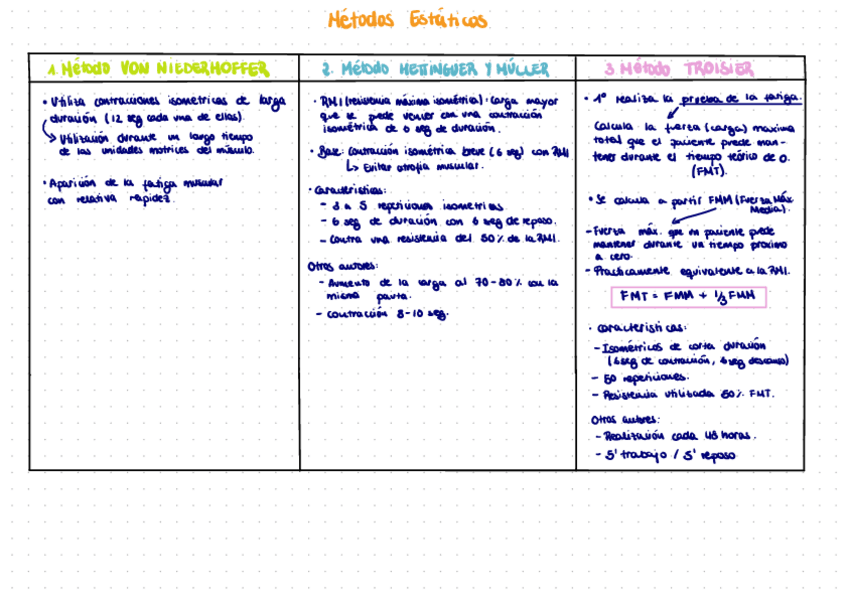 Métodos Estáticos
1. Método VON NIEDERHOFFER
• Utiliza contracciones isometricas de larga
duración (12 seg cada una de ellas).
↳ Utilización durante un largo tiempo
de las unidades motrices del músculo.
• Aparición de la fatiga muscular
con relativa rapidez.
2. Método HETTINGUER Y MÜLLER
• RMI (resistencia máxima isométrica): carga mayor
que se puede vencer con una contracción
isométrica de 6 seg de duración.
• Base: Contracción isométrica breve (6 seg) con RMI
↳ Evitar atrofia muscular.
• Características:
- 3 a 5 repeticiones isometricas
- 6 seg de duración con 6 seg de reposo.
- Contra una resistencia del 50% de la RMI.
Otros autores:
- Aumento de la carga al 70-80% con la
misma pauta.
- Contracción 8-10 seg.
3. Método TROISIER
• 1º realiza la prueba de la fatiga.
Calcula la fuerza (carga) maxima
total que el paciente puede man-
tener durante el tiempo teórico de 0.
(FMT).
• Se calcula a partir FMM (Fuerza Máx
Media).
- Fuerza máx. que un paciente puede
mantener durante un tiempo proximo
a cero.
- Practicamente equivalente a la RMI.
FMT = FMM + 1/3 FMM
• características:
- Isométricos de corta duración
(6 seg de contracción, 6 seg descanso)
- 50 repeticiones.
- Resistencia utilizada 50% FMT.
Otros autores:
- Realización cada 48 horas.
- 5' trabajo / 5' reposo